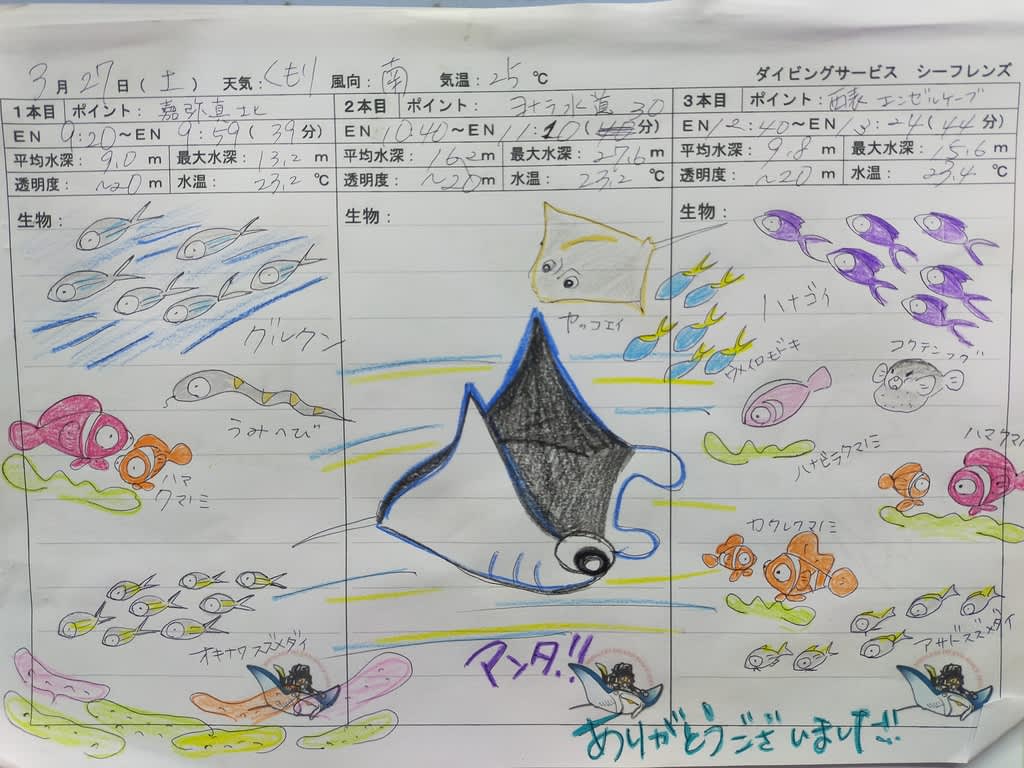 3月27日(土) 天気:くもり 風向:南 気温:25℃
ダイビングサービス シーフレンズ
1本目 ポイント:嘉弥真北
EN 9:20～EN 9:59(39分)
平均水深:9.0m 最大水深:13.2m
透明度:～20m 水温:23.2℃
生物:
グルクン
うみへび
ハマ
クマノミ
オキナワスズメダイ
2本目 ポイント:ヨナラ水道
EN 10:40～EN 11:10(30分)
平均水深:16.2m 最大水深:27.6m
透明度:～20m 水温:23.2℃
生物:
ヤッコエイ
ウメイロモドキ
マンタ!!
3本目 ポイント:西表 エンゼルケーブ
EN 12:40～EN 13:24(44分)
平均水深:9.8m 最大水深:15.6m
透明度:～20m 水温:23.4℃
生物:
ハナゴイ
コクテンフグ
ハナビラクマノミ
ハマクマノミ
カクレクマノミ
アサドスズメダイ
ありがとうございました!!